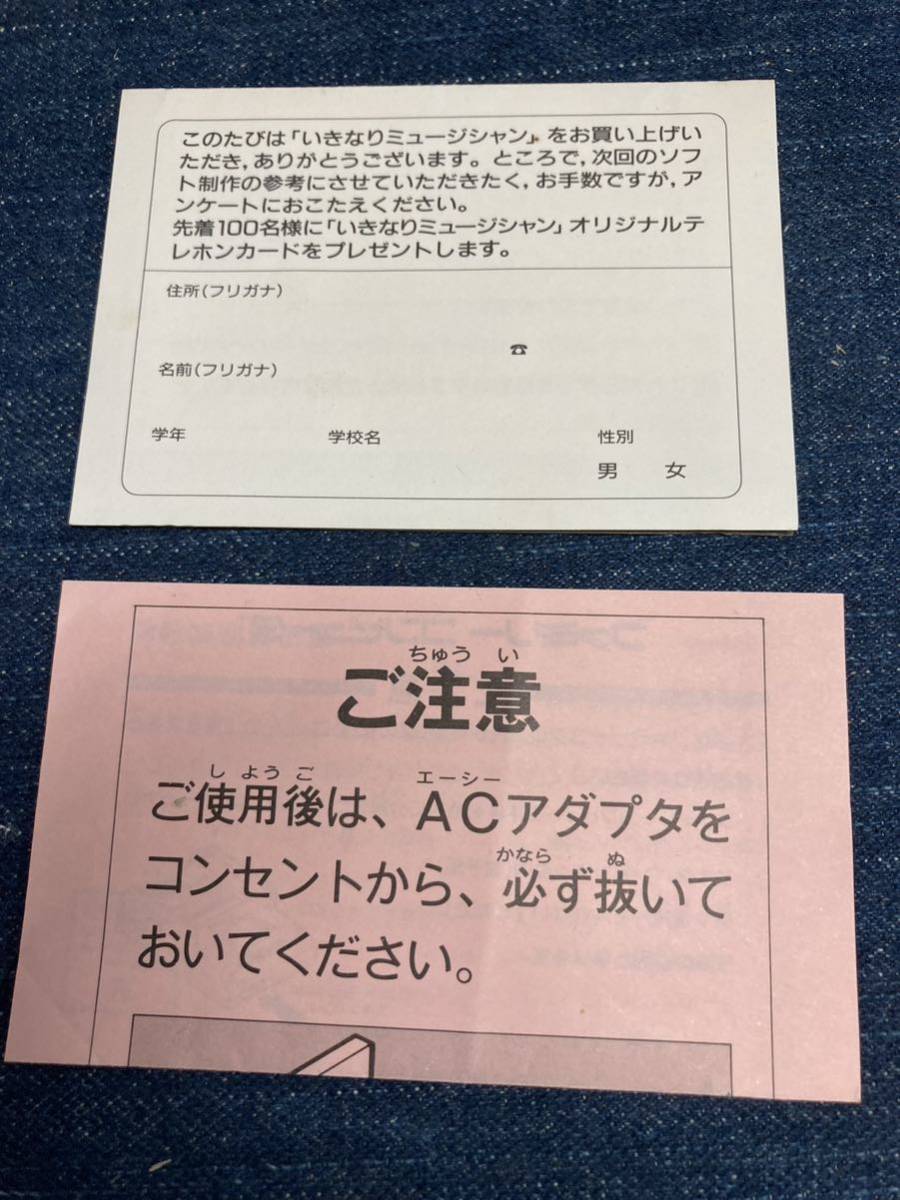 このたびは「いきなりミュージシャン」をお買い上げい
ただき,ありがとうございます。ところで,次回のソフ
ト制作の参考にさせていただきたく,お手数ですが,ア
ンケートにおこたえください。
先着100名様に「いきなりミュージシャン」オリジナルテ
レホンカードをプレゼントします。
住所(フリガナ)
☎
名前(フリガナ)
学年 学校名 性別
男 女
ちゅう い
ご注意
し よう ご エーシー
ご使用後は、ACアダプタを
かなら ぬ
コンセントから、必ず抜いて
おいてください。